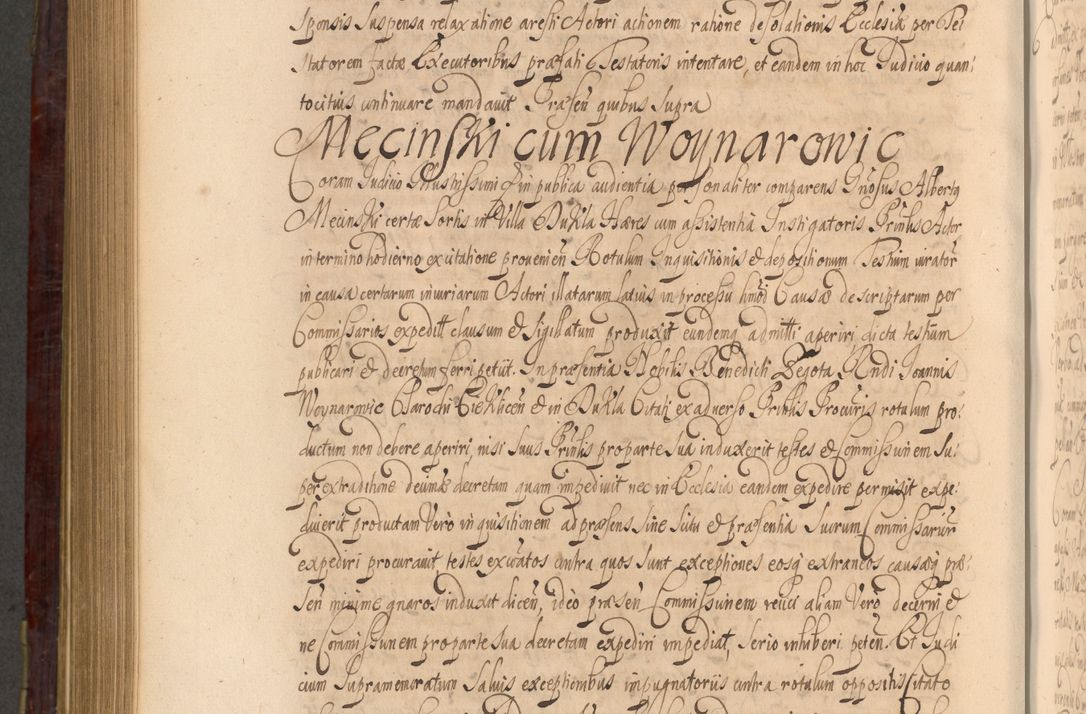 sponsis suspensa relaxatione aresti Actori actionem ratione desolationis Ecclesiæ per Tes
statorem factæ Executoribus præfati Testatoris intentare, et eandem in hoc Judicio quan:
tocitius continuare mandavit Præsen quibus supra
Mecinski cum Woynarowic
Coram Judicio Illustrissimi &c in publica audientia personaliter comparens Gnosus Albertus
Mecinski certæ sortis in Villa Dukla Hæres cum assistentia Instigatoris Prinlis Actor
in termino hodierno ex citatione provenien Rotulum Inquisitionis et depositionum Testium iurator
in causa certarum iniuriarum Actori illatarum latius in processu hmoi Causæ descriptarum per
Commissarios expeditt clausum et sigillatum produxit eundemq admitti aperiri dicta testium
publicari et decretum ferri petiit. In præsentia Nobilis Benedicti Zegota Rndi Joannis
Woynarowic Parochi Cieklicen et in Dukla Citati ex adverso Prinlis Procuris rotulum pro:
ductum non debere aperiri, nisi suus Prinlis pro parte sua induxerit testes et Commissionem su:
per extraditione decimæ decretam quam impedivit nec in Ecclesia eandem expedire permisit expe:
diverit productam Vero inquisitionem ad præsens sine scitu et præsentia suorum Commissariorum
expediri procuravit testes exivatos contra quos sunt exceptiones eosq extraneos causæq præ:
sen minime gnaros induxit dicen, ideo præsen Commissionem reiici aliam Vero decerni et
ne Commissionem pro parte sua decretam expediri impediat, serio inhiberi peten. Et Judi
cium supramemoratum salvis exceptionibus impugnatoriis contra rotulum oppositis Citato